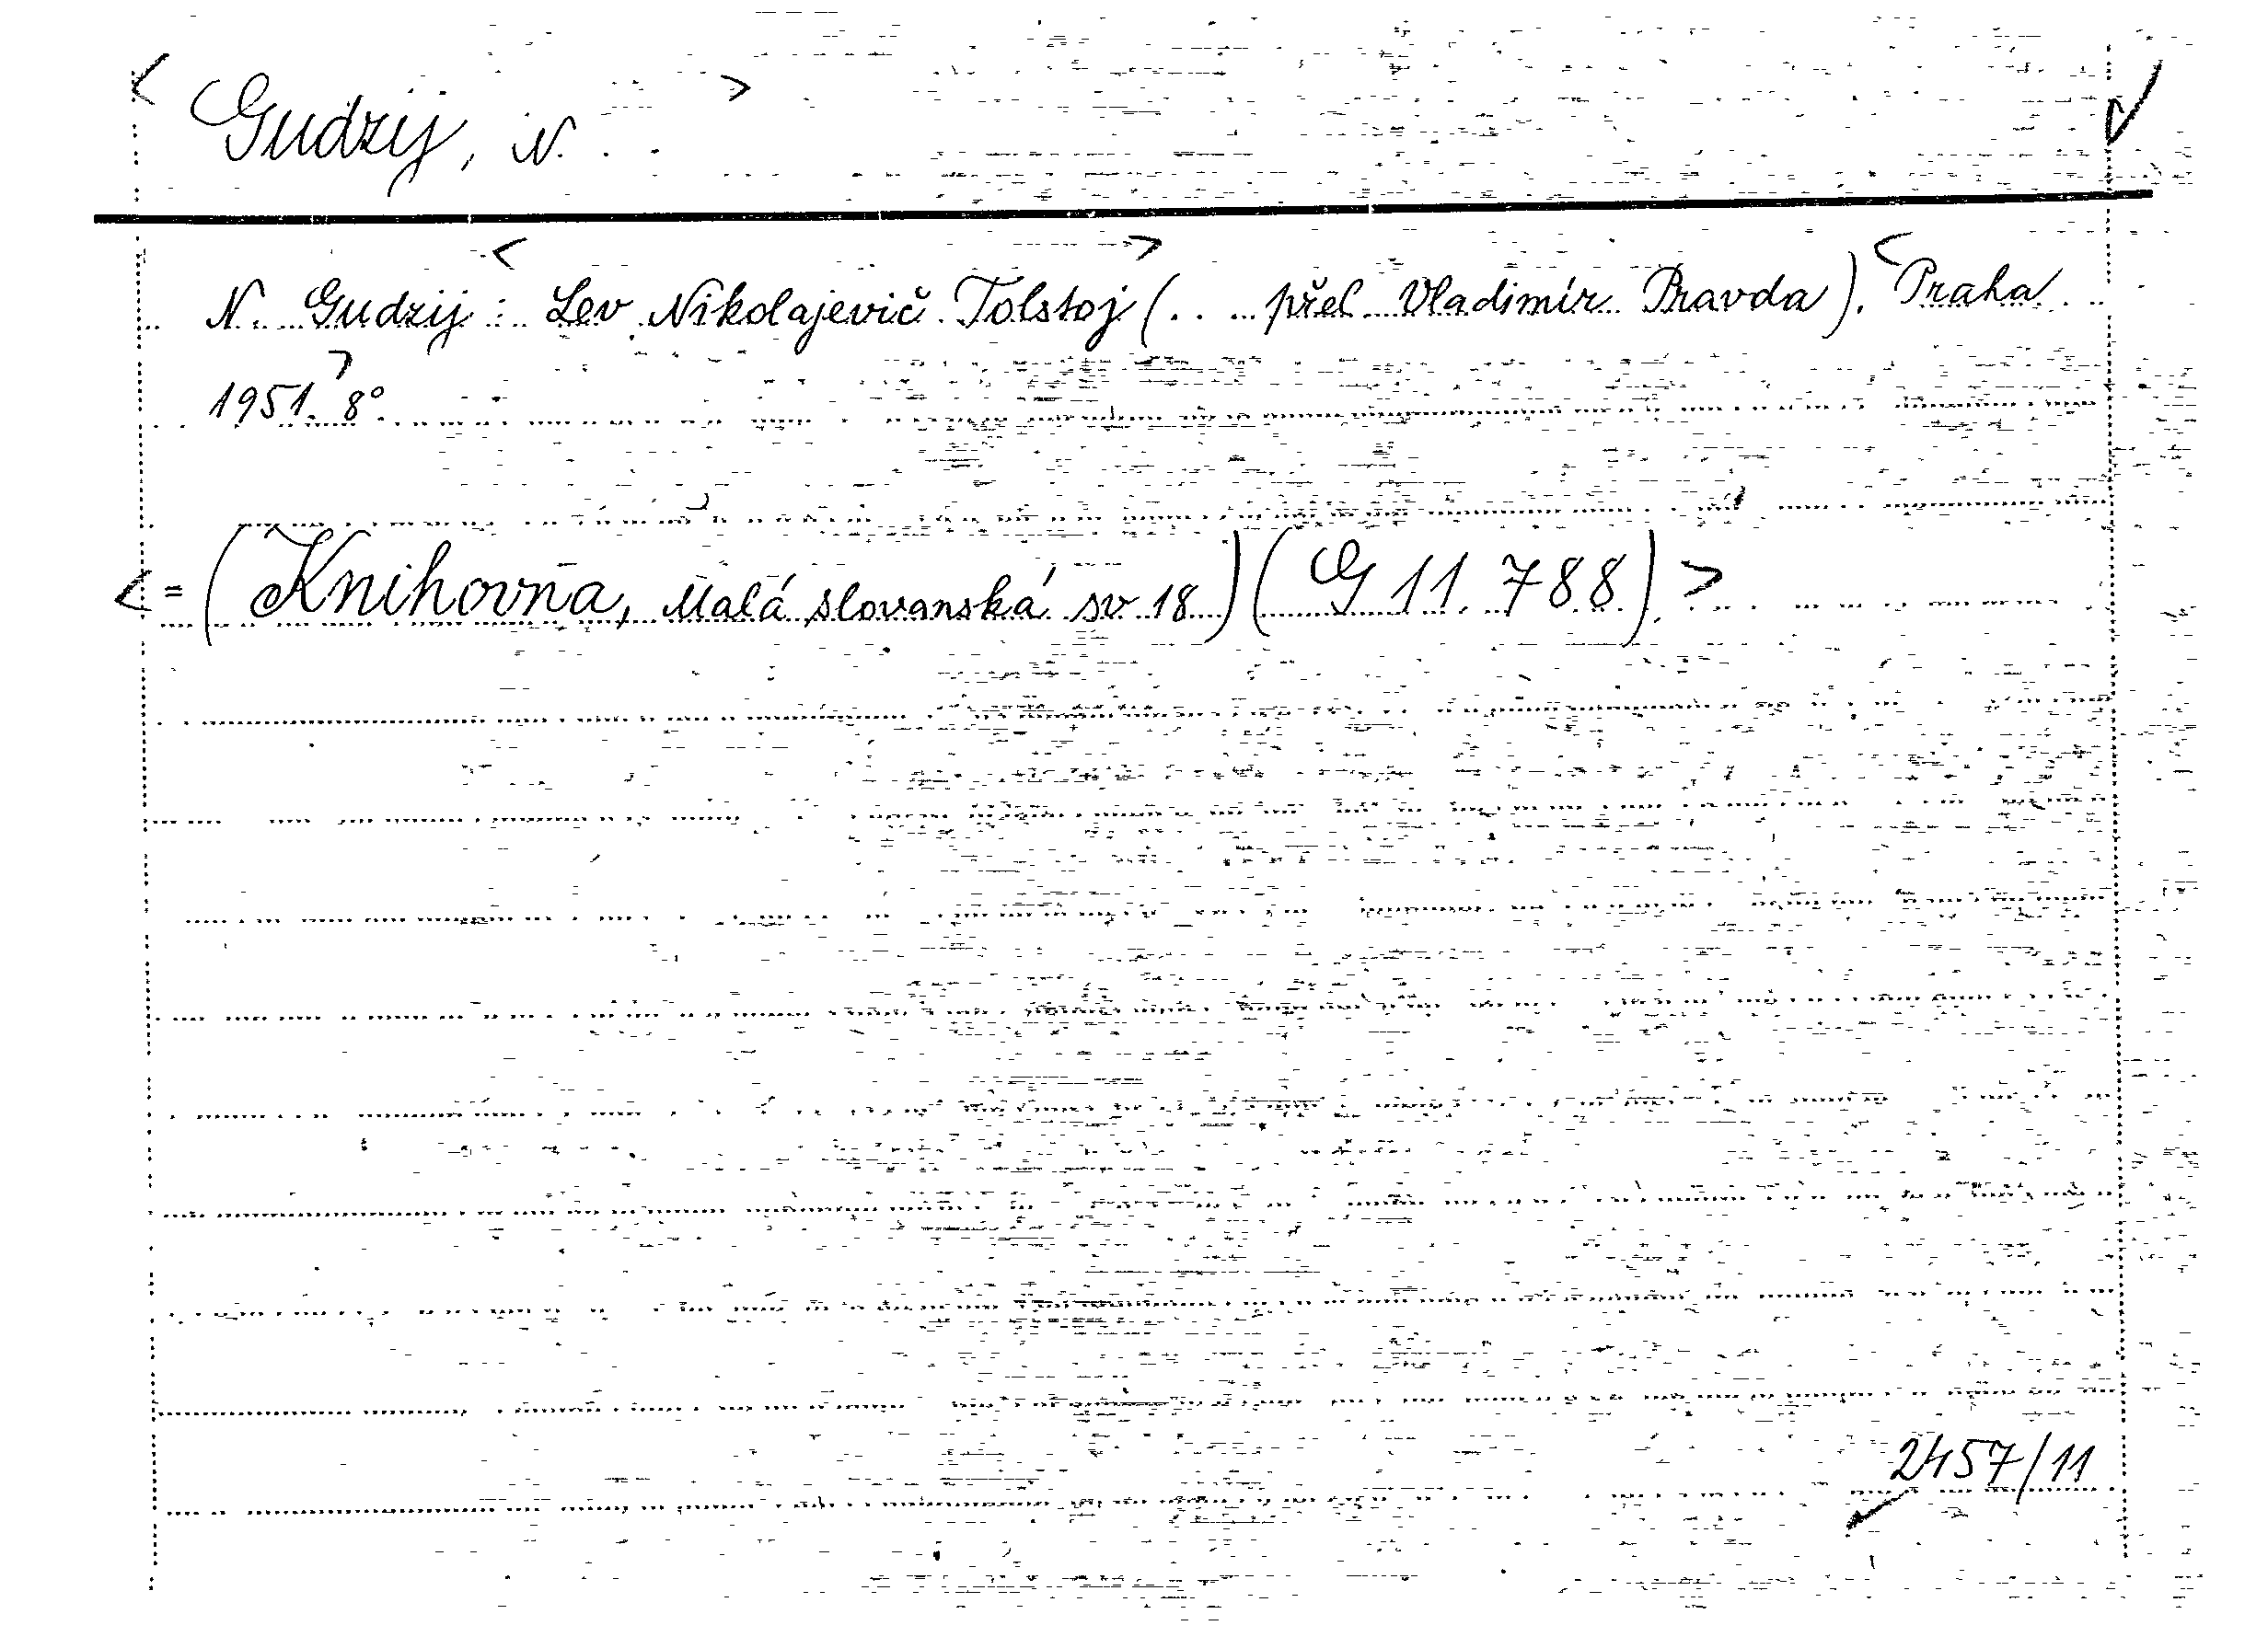 < Gudzij, N. >
N. Gudzij: < Lev Nikolajevič Tolstoj > (... přel Vladimír Pravda). < Praha
1951. > 8°.
< = (Knihovna, Malá slovanská sv 18) (G 11.788). >
2457/11